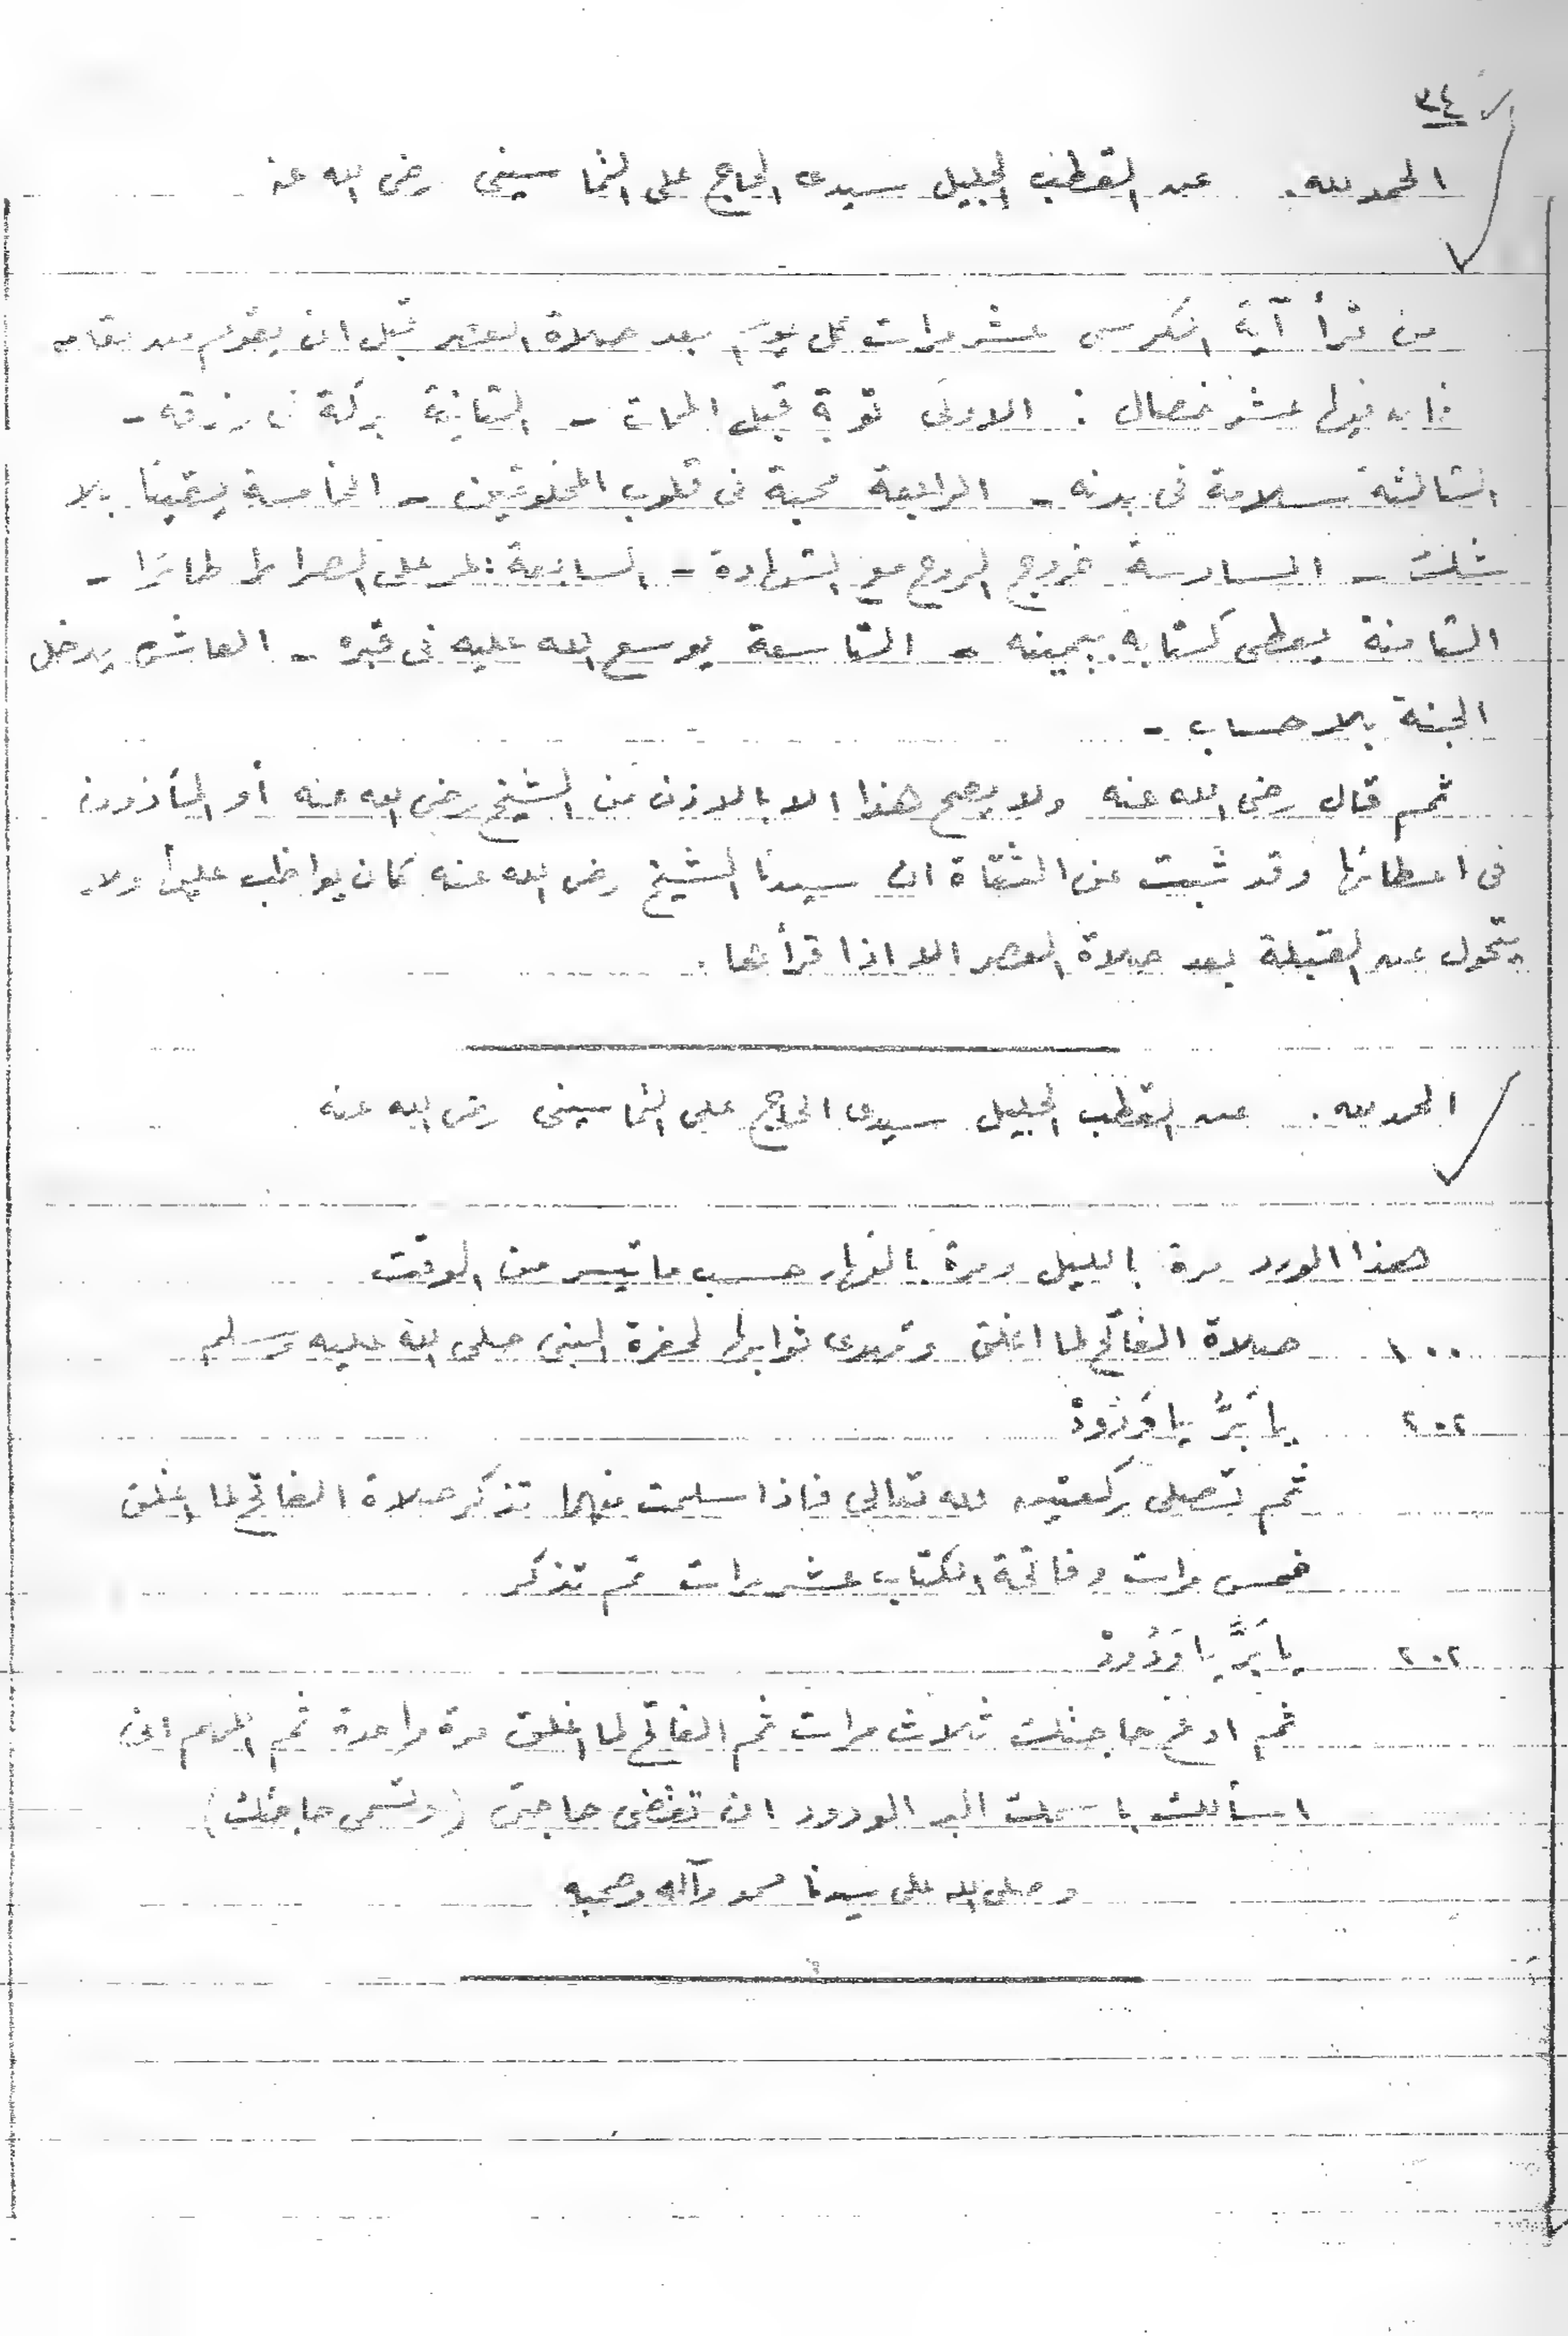 ٣٤
الحمد لله. عن القطب الجليل سيدى الحاج على التماسينى رضى الله عنه
من قرأ آية الكرسى عشر مرات كل يوم بعد صلاة العصر قبل ان يقوم من مقامه
فان فيها عشر خصال : الاولى توبة قبل الممات - الثانية بركة فى رزقه -
الثالثة سلامة فى بدنه - الرابعة محبة فى قلوب المخلوقين - الخامسة يقينا بلا
شك - السادسة خروج الروح مع الشهادة - السابعة يمر على الصراط طائرا -
الثامنة يعطى كتابه بيمينه - التاسعة يوسع الله عليه فى قبره - العاشرة يدخل
الجنة بلا حساب -
ثم قال رضى الله عنه ولا يصح هذا الا بالاذن من الشيخ رضى الله عنه أو المأذون
فى اعطائها وقد ثبت عن الثقاة ان سيدنا الشيخ رضى الله عنه كان يواظب عليها ولا
يتحول عن القبلة بعد صلاة العصر الا اذا قرأها .
الحمد لله . عن القطب الجليل سيدى الحاج على التماسينى رضى الله عنه
هذا الورد مرة بالليل ومرة بالنهار حسب ما تيسر من الوقت
١٠٠ صلاة الفاتح لما اغلق وتهدى ثوابها لحضرة النبى صلى الله عليه وسلم
٢٠٢ يا بَرُّ يا وَدُودْ
ثم تصلى ركعتين لله تعالى فاذا سلمت منهما تذكر صلاة الفاتح لما اغلق
خمس مرات وفاتحة الكتاب عشر مرات ثم تذكر
٢٠٢ يا بَرُّ يا وَدُودْ
ثم ادع حاجتك ثلاث مرات ثم الفاتح لما اغلق مرة واحدة ثم اللهم انى
اسألك باسمك البر الودود ان تقضى حاجتى (وتسمى حاجتك)
وصلى الله على سيدنا محمد وآله وصحبه